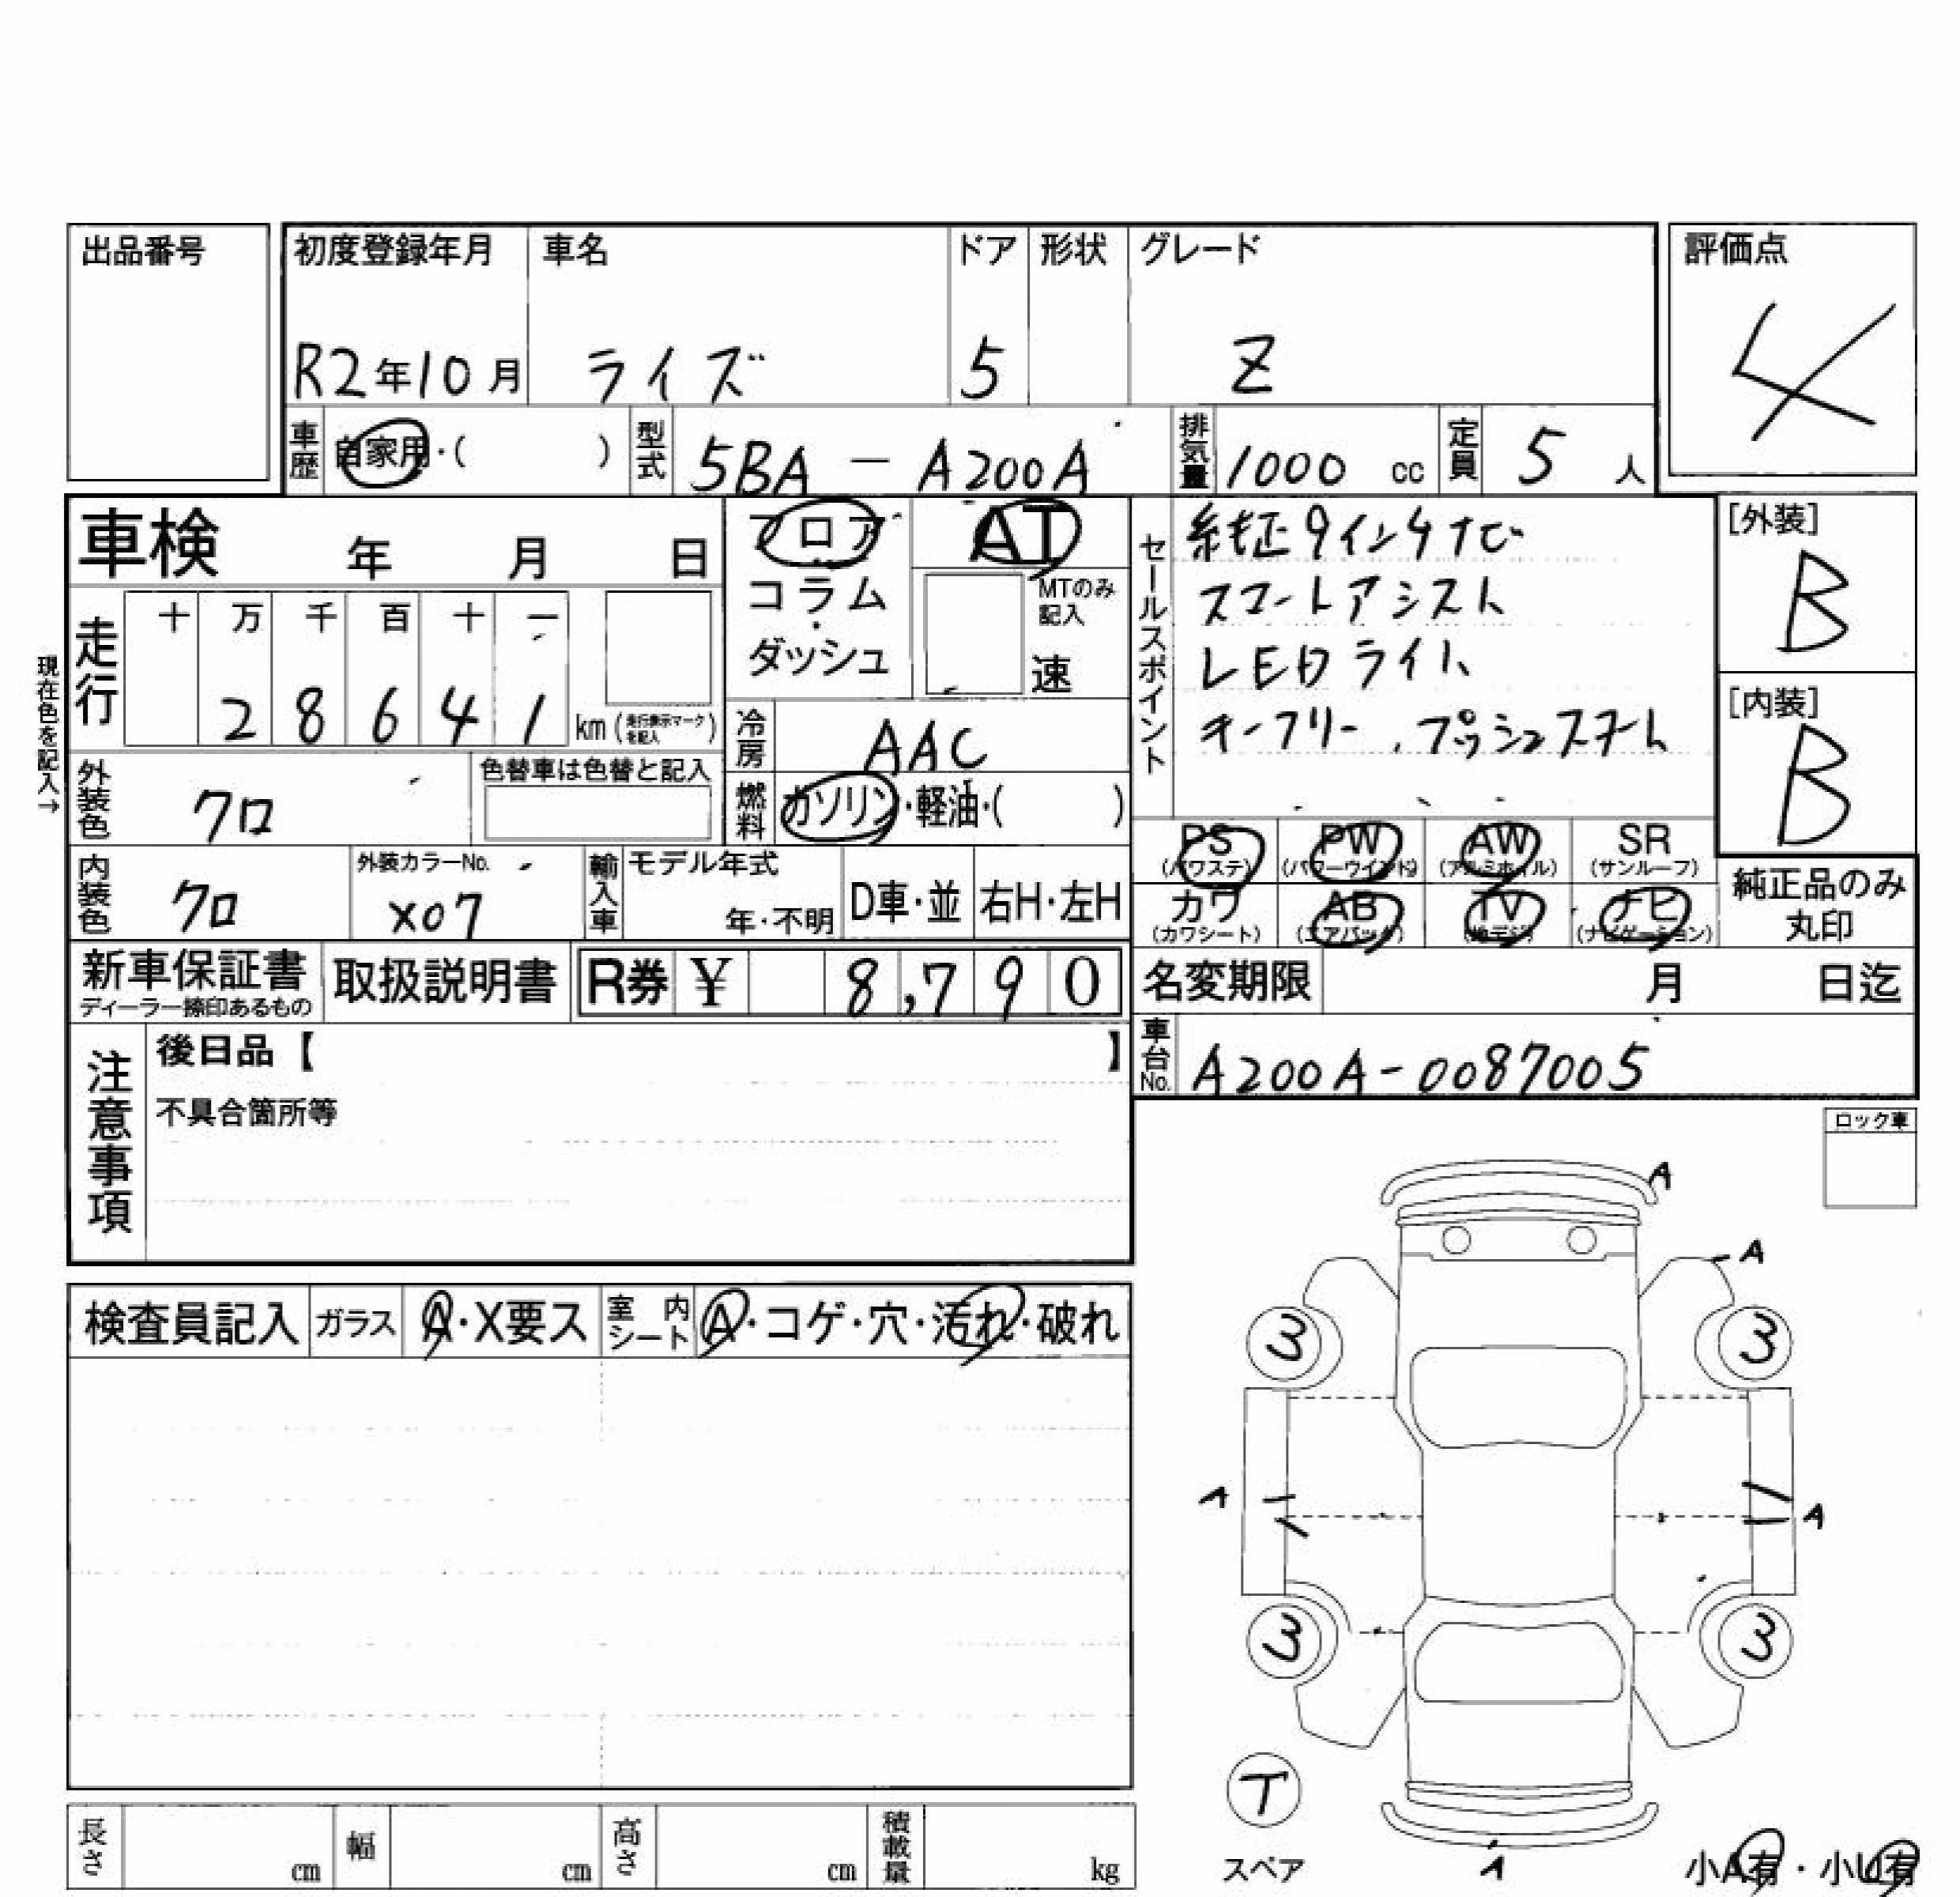 出品番号
初度登録年月 車名 ドア 形状 グレード 評価点
R2年10月 ライズ 5 Z 4
車歴 自家用・( ) 型式 5BA - A200A 排気量 1000 cc 定員 5 人
車検 年 月 日
フロア・コラム・ダッシュ
AT
MTのみ記入
速
現在色を記入→
走行 十 万 千 百 十 一
2 8 6 4 1 km (走行表示マークを記入)
冷房 AAC
外装色 クロ 色替車は色替と記入
燃料 ガソリン・軽油・( )
内装色 クロ 外装カラーNo. X07
輸入車 モデル年式 年・不明 D車・並 右H・左H
セールスポイント
純正9インチナビ
スマートアシスト
LEDライト
キーフリー、プッシュスタート
[外装] B
[内装] B
PS (パワステ) PW (パワーウインド) AW (アルミホイル) SR (サンルーフ)
カワ (カワシート) AB (エアバック) TV (地デジ) ナビ (ナビゲーション)
純正品のみ丸印
新車保証書 ディーラー捺印あるもの 取扱説明書 R券 ¥ 8,790
名変期限 月 日迄
車台No. A200A-0087005
注意事項
後日品【 】
不具合箇所等
ロック車
検査員記入 ガラス A・X要ス 室内シート A・コゲ・穴・汚れ・破れ
A
A
3 3
A A
3 3
T
スペア
A
小A有・小U有
長さ cm 幅 cm 高さ cm 積載量 kg